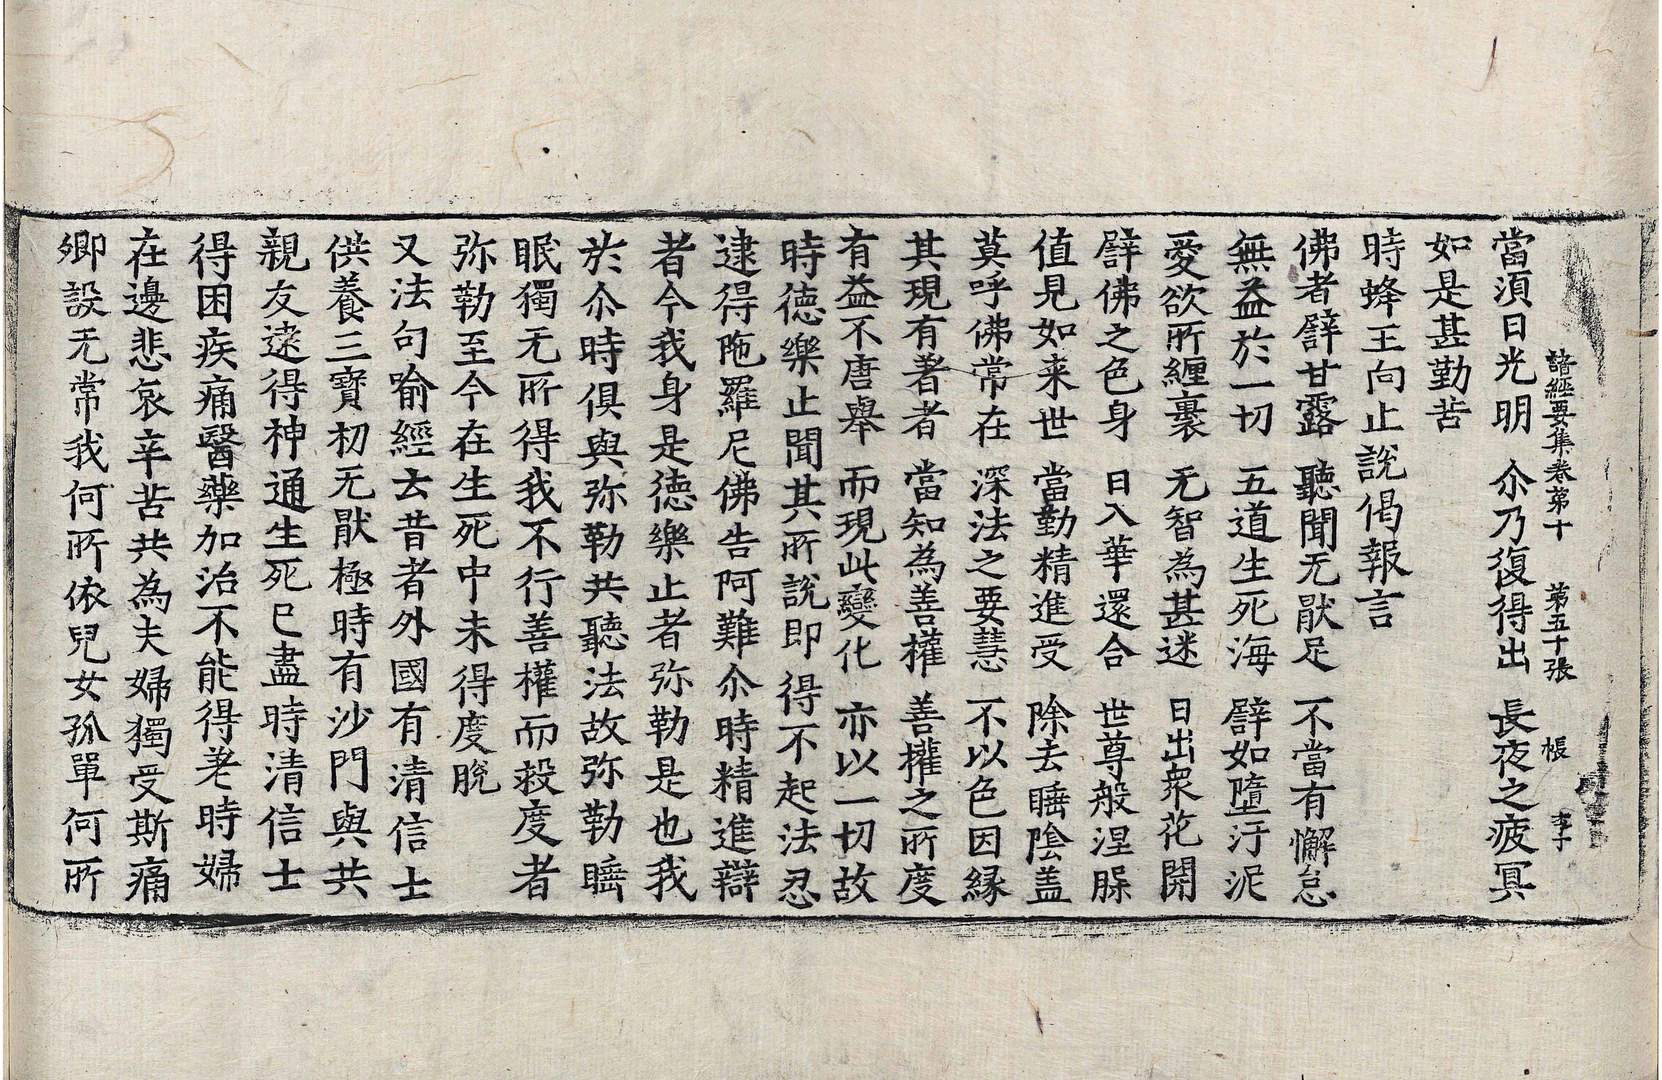 諸經要集卷第十　第五十張　帳　李子
當須日光明　尒乃復得出　長夜之疲冥
如是甚勤苦
時蜂王向止說偈報言
佛者譬甘露　聽聞无猒足　不當有懈怠
無益於一切　五道生死海　譬如墮汙泥
愛欲所纏裹　无智為甚迷　日出衆花開
譬佛之色身　日入華還合　世尊般涅𦜖
值見如来世　當勤精進受　除去睡陰盖
莫呼佛常在　深法之要慧　不以色因緣
其現有著者　當知為善權　善權之所度
有益不唐舉　而現此變化　亦以一切故
時德樂止聞其所說即得不起法忍
逮得陁羅尼佛告阿難尒時精進辯
者今我身是德樂止者弥勒是也我
於尒時俱與弥勒共聽法故弥勒睡
眠獨无所得我不行善權而救度者
弥勒至今在生死中未得度脫
又法句喻經云昔者外國有清信士
供養三寶初无猒極時有沙門與共
親友逺得神通生死已盡時清信士
得困疾痛醫藥加治不能得差時婦
在邊悲哀辛苦共為夫婦獨受斯痛
卿設无常我何所依兒女孤單何所